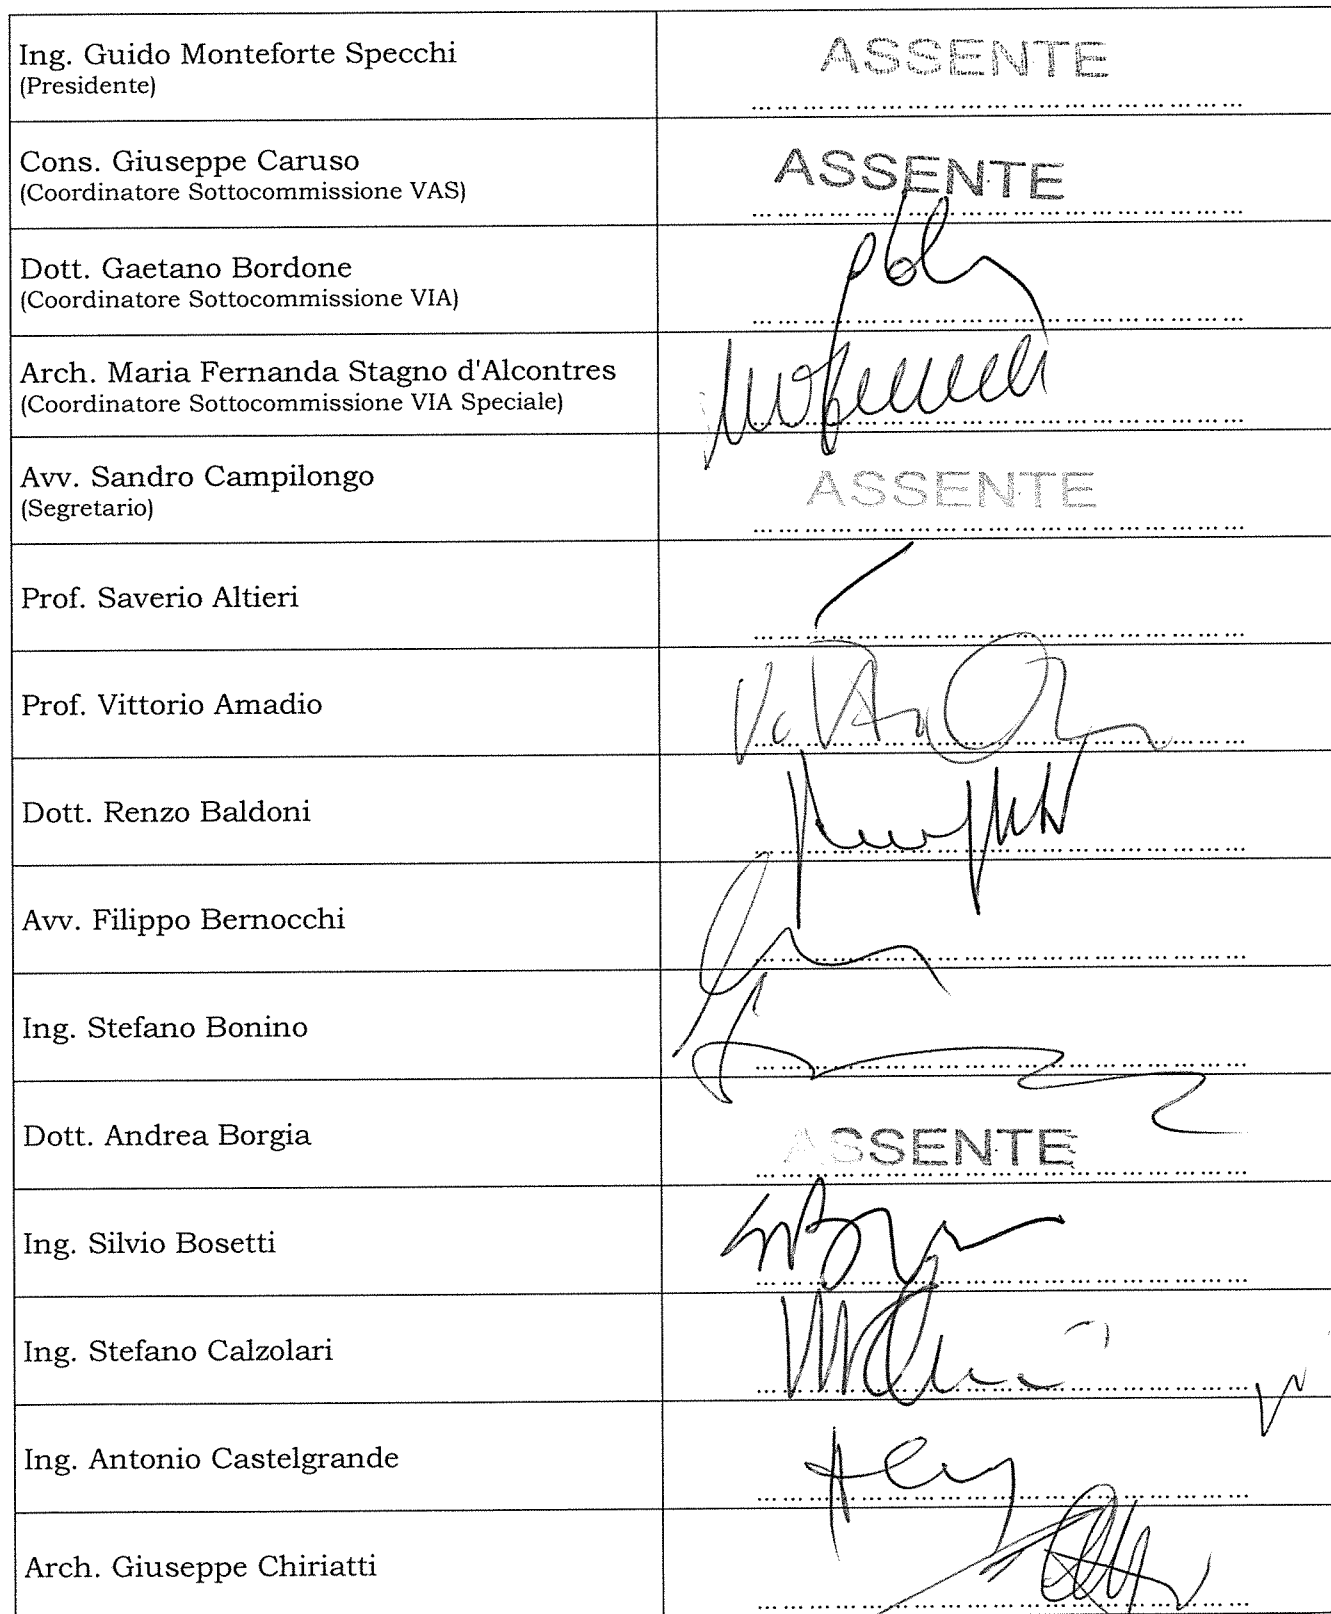 Ing. Guido Monteforte Specchi
ASSENTE
(Presidente)
Cons. Giuseppe Caruso
ASSENTE
(Coordinatore Sottocommissione VAS)
Dott. Gaetano Bordone
(Coordinatore Sottocommissione VIA)
Arch. Maria Fernanda Stagno d'Alcontres
(Coordinatore Sottocommissione VIA Speciale)
Avv. Sandro Campilongo
ASSENTE
(Segretario)
Prof. Saverio Altieri
Prof. Vittorio Amadio
Dott. Renzo Baldoni
Avv. Filippo Bernocchi
Ing. Stefano Bonino
Dott. Andrea Borgia
ASSENTE
Ing. Silvio Bosetti
Ing. Stefano Calzolari
Ing. Antonio Castelgrande
Arch. Giuseppe Chiriatti